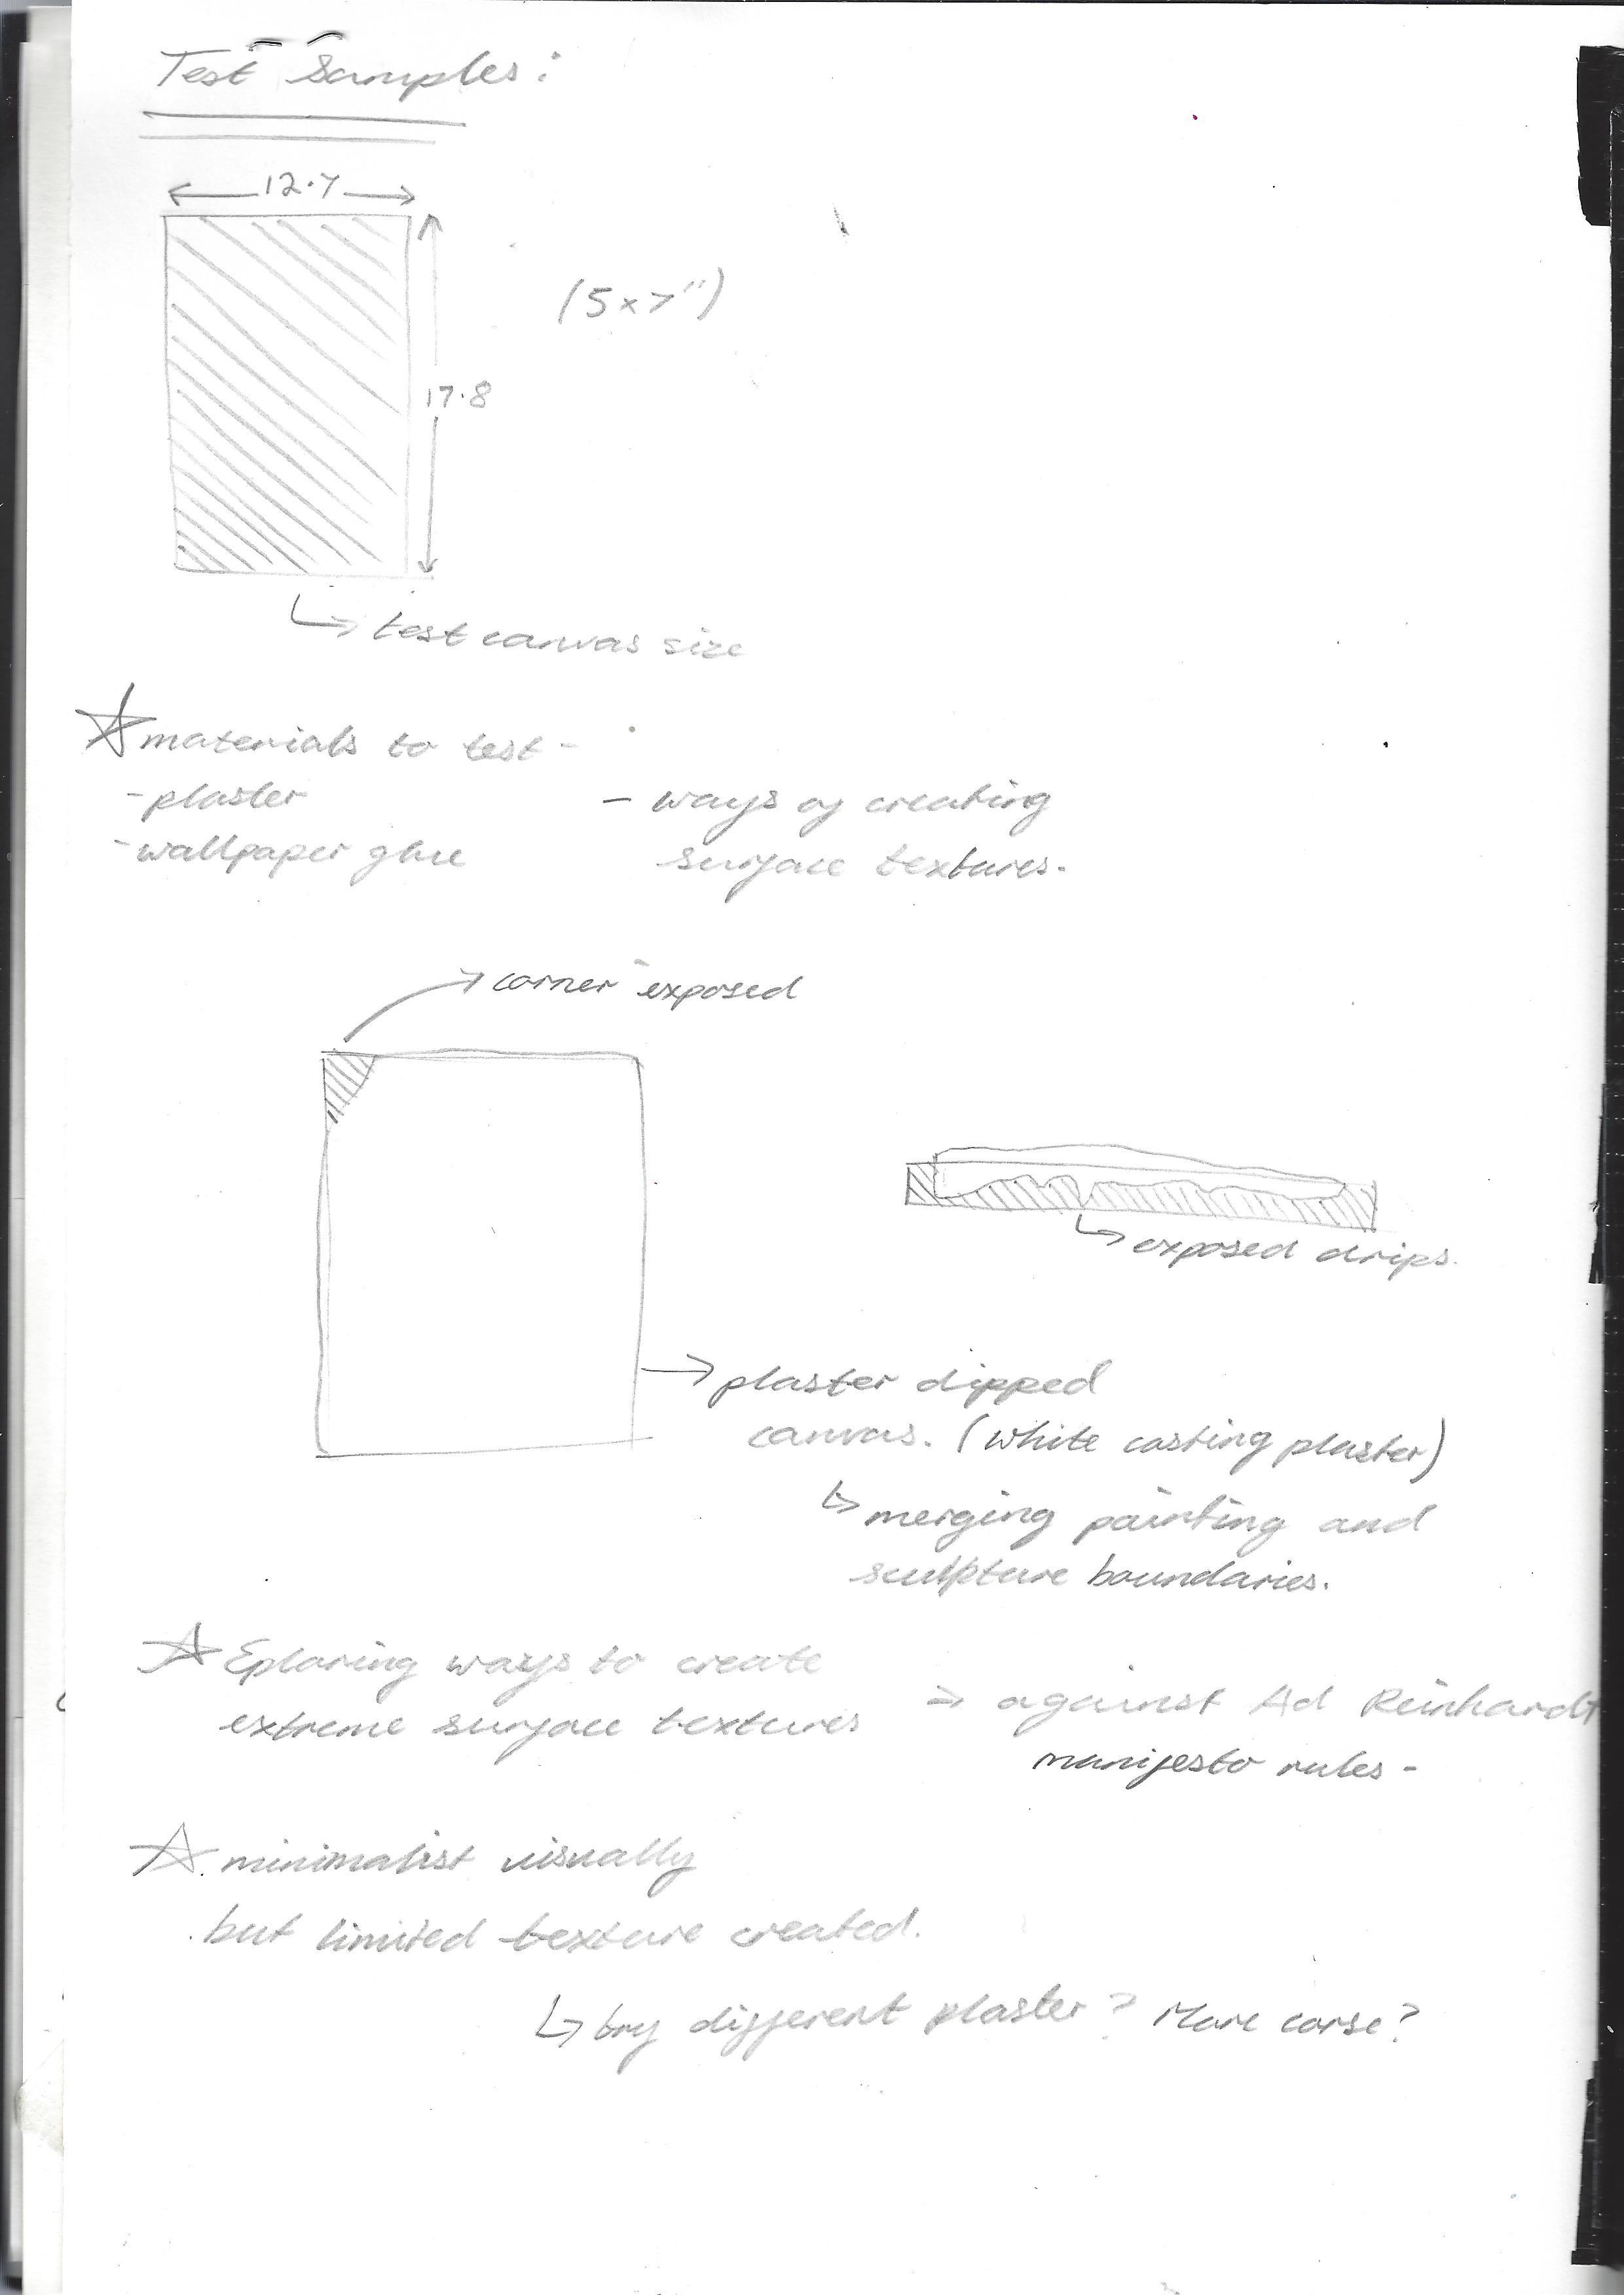 Test Samples:
12.7
(5x7")
17.8
test canvas size
materials to test -
- plaster
- wallpaper glue
- ways of creating
surface textures.
corner exposed
exposed drips.
plaster dipped
canvas. (white casting plaster)
merging painting and
sculpture boundaries.
Eploring ways to create
extreme surface textures
→ against Ad Reinhardt
manifesto rules -
minimalist visually
but limited texture created.
try different plaster? More corse?